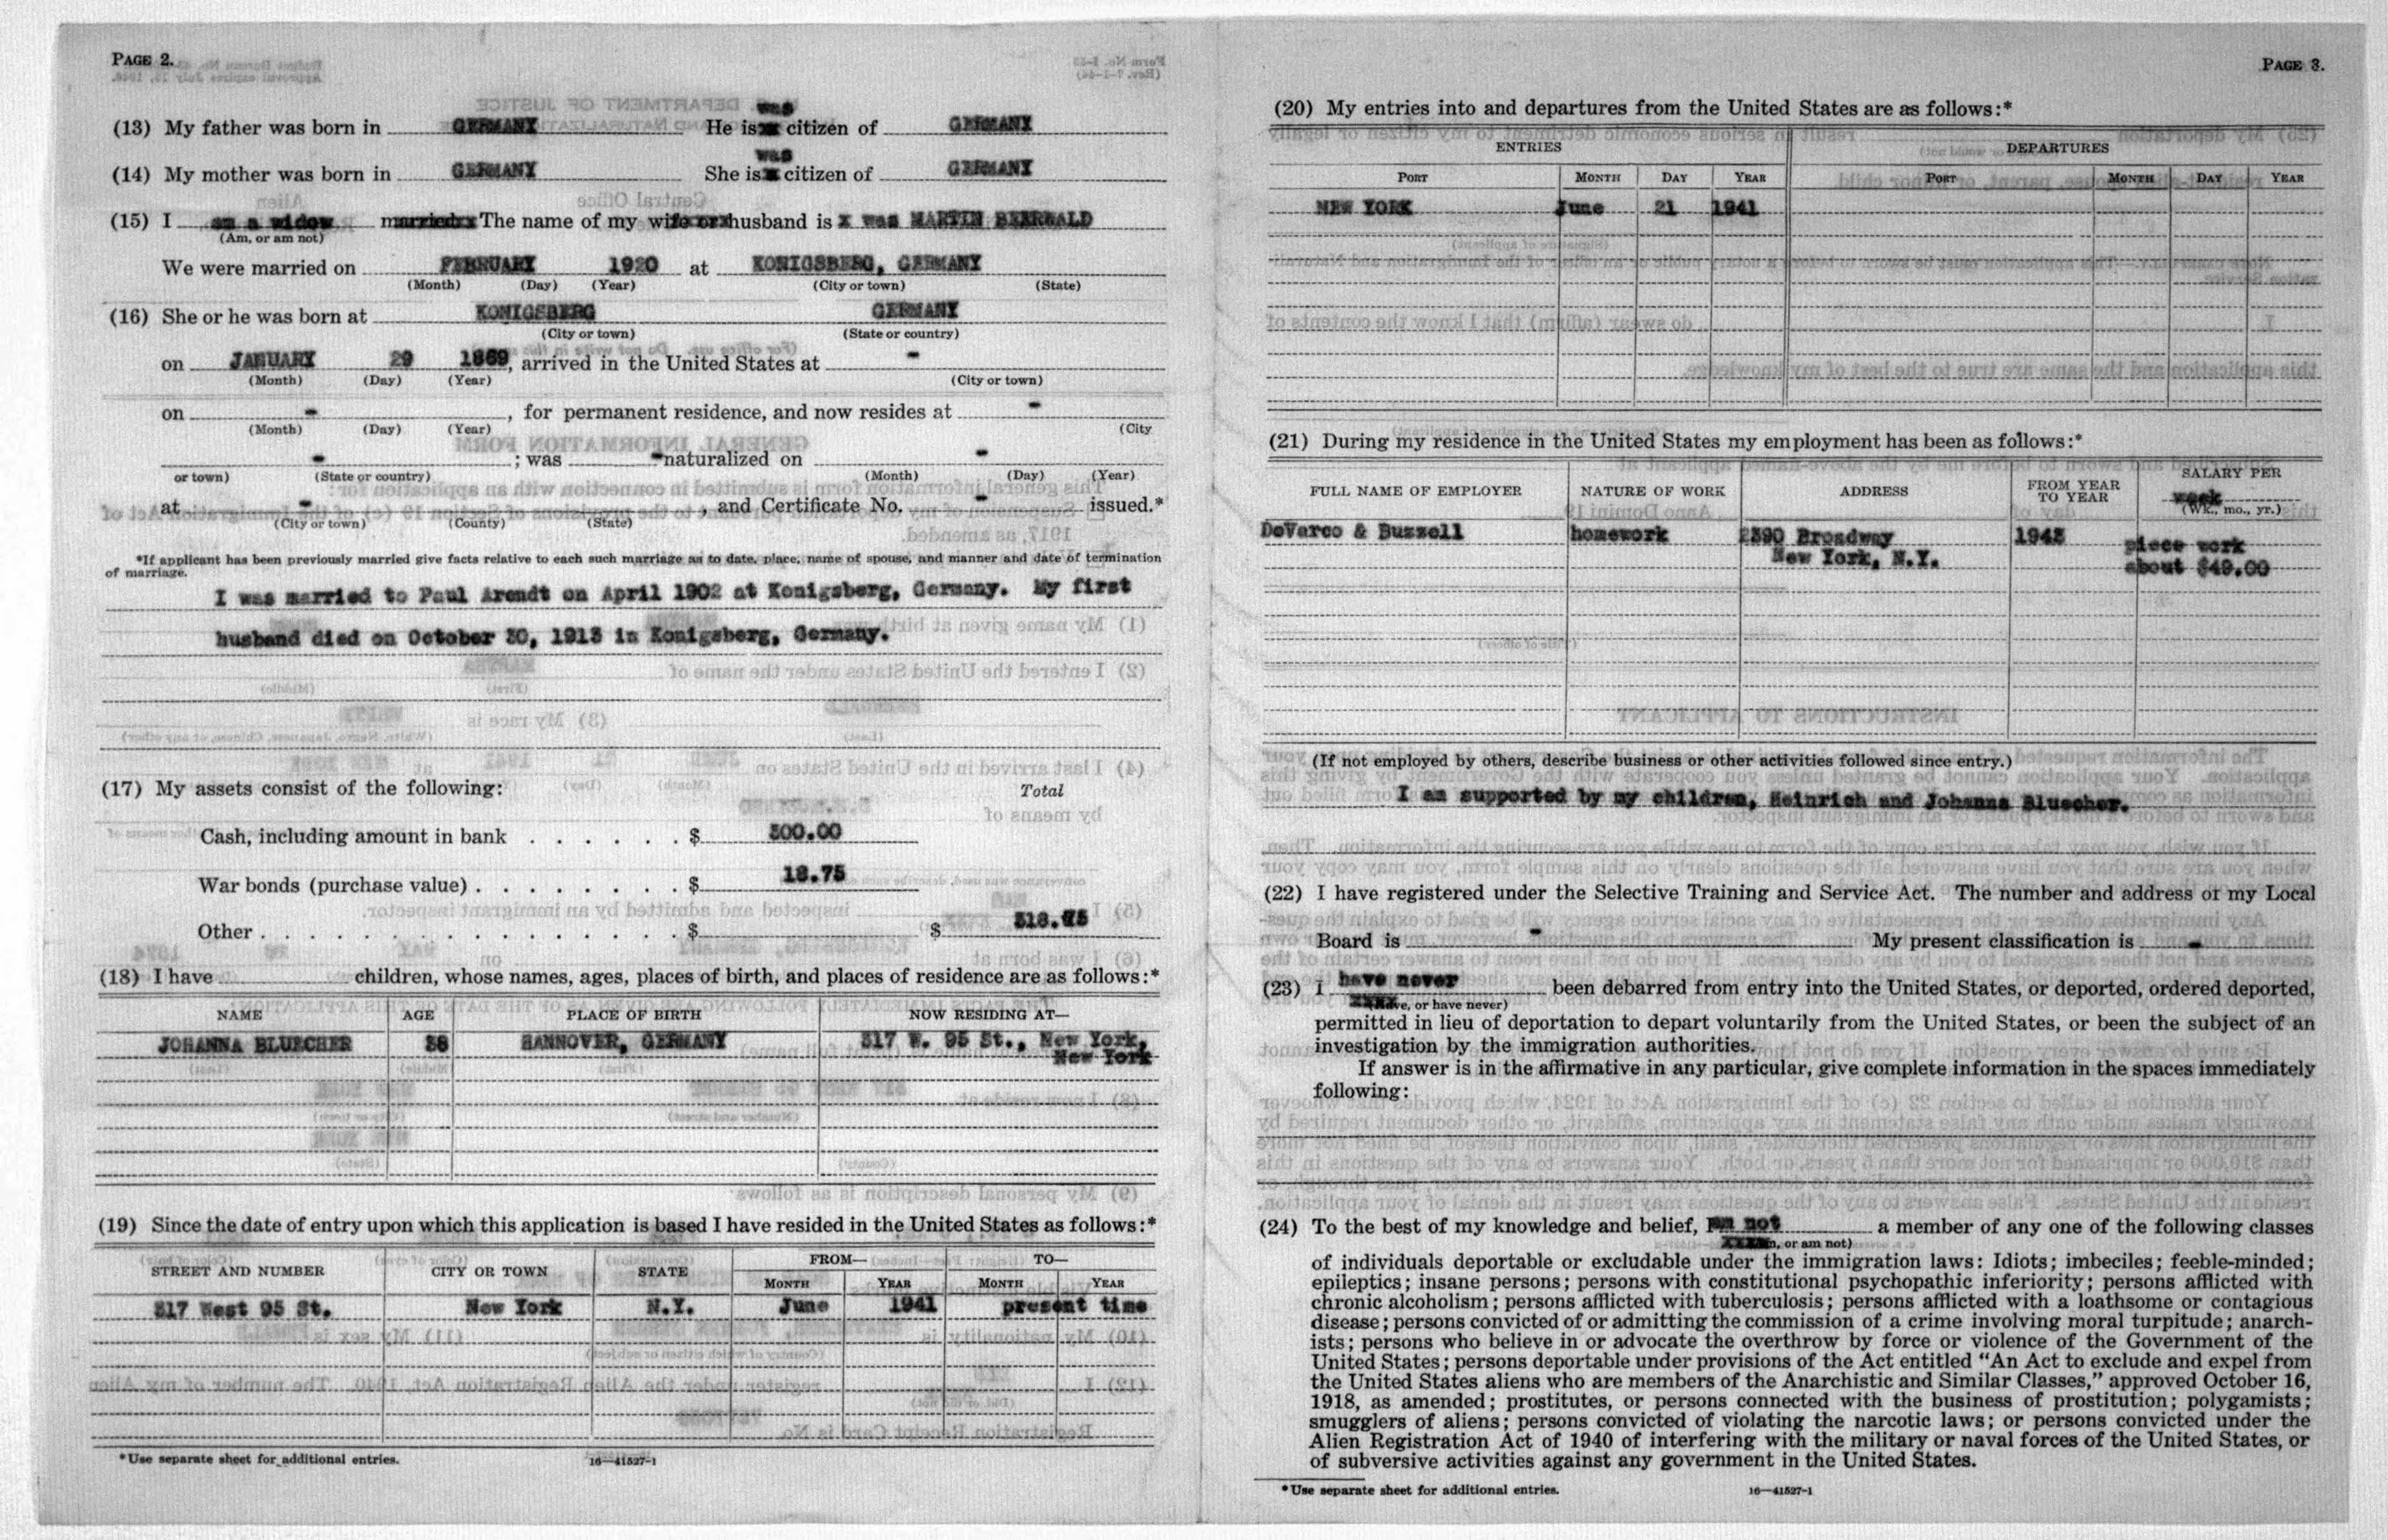 PAGE 2.
(13) My father was born in GERMANY He is was citizen of GERMANY
(14) My mother was born in GERMANY She is was citizen of GERMANY
(15) I am a widow married. The name of my wife or husband is x was MARTIN BEERWALD
(Am, or am not)
We were married on FEBRUARY 1920 at KONIGSBERG, GERMANY
(Month) (Day) (Year) (City or town) (State)
(16) She or he was born at KONIGSBERG GERMANY
(City or town) (State or country)
on JANUARY 29 1869, arrived in the United States at -
(Month) (Day) (Year) (City or town)
on - , for permanent residence, and now resides at -
(Month) (Day) (Year) (City
- ; was - naturalized on -
or town) (State or country) (Month) (Day) (Year)
at - , and Certificate No. - issued.*
(City or town) (County) (State)
*If applicant has been previously married give facts relative to each such marriage as to date, place, name of spouse, and manner and date of termination
of marriage.
I was married to Paul Arendt on April 1902 at Konigsberg, Germany. My first
husband died on October 30, 1913 in Konigsberg, Germany.
(17) My assets consist of the following: Total
Cash, including amount in bank . . . . . . $ 300.00
War bonds (purchase value) . . . . . . . . $ 18.75
Other . . . . . . . . . . . . . . . . . $ $ 318.75
(18) I have children, whose names, ages, places of birth, and places of residence are as follows:*
NAME AGE PLACE OF BIRTH NOW RESIDING AT—
JOHANNA BLUECHER 38 HANNOVER, GERMANY 317 W. 95 St., New York,
New York
(19) Since the date of entry upon which this application is based I have resided in the United States as follows:*
FROM— TO—
STREET AND NUMBER CITY OR TOWN STATE
MONTH YEAR MONTH YEAR
317 West 95 St. New York N.Y. June 1941 present time
*Use separate sheet for additional entries. 16—41527-1
PAGE 3.
(20) My entries into and departures from the United States are as follows:*
ENTRIES DEPARTURES
PORT MONTH DAY YEAR PORT MONTH DAY YEAR
NEW YORK June 21 1941
(21) During my residence in the United States my employment has been as follows:*
FULL NAME OF EMPLOYER NATURE OF WORK ADDRESS FROM YEAR TO YEAR SALARY PER
week
(Wk., mo., yr.)
DeVarco & Buzzell homework 2390 Broadway 1943 piece work
New York, N.Y. about $49.00
(If not employed by others, describe business or other activities followed since entry.)
I am supported by my children, Heinrich and Johanna Bluecher.
(22) I have registered under the Selective Training and Service Act. The number and address or my Local
Board is - My present classification is -
(23) I have never been debarred from entry into the United States, or deported, ordered deported,
ve, or have never)
permitted in lieu of deportation to depart voluntarily from the United States, or been the subject of an
investigation by the immigration authorities.
If answer is in the affirmative in any particular, give complete information in the spaces immediately
following:
(24) To the best of my knowledge and belief, am not a member of any one of the following classes
or am not)
of individuals deportable or excludable under the immigration laws: Idiots; imbeciles; feeble-minded;
epileptics; insane persons; persons with constitutional psychopathic inferiority; persons afflicted with
chronic alcoholism; persons afflicted with tuberculosis; persons afflicted with a loathsome or contagious
disease; persons convicted of or admitting the commission of a crime involving moral turpitude; anarch-
ists; persons who believe in or advocate the overthrow by force or violence of the Government of the
United States; persons deportable under provisions of the Act entitled “An Act to exclude and expel from
the United States aliens who are members of the Anarchistic and Similar Classes,” approved October 16,
1918, as amended; prostitutes, or persons connected with the business of prostitution; polygamists;
smugglers of aliens; persons convicted of violating the narcotic laws; or persons convicted under the
Alien Registration Act of 1940 of interfering with the military or naval forces of the United States, or
of subversive activities against any government in the United States.
*Use separate sheet for additional entries. 16—41527-1